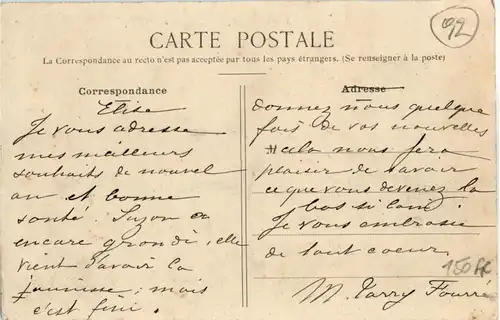 92
CARTE POSTALE
La Correspondance au recto n'est pas acceptée par tous les pays étrangers. (Se renseigner à la poste)
Correspondance
Elise
Je vous adresse
mes meilleurs
souhaits de nouvel
an et bonne
santé. Suzon a
encare grandi, elle
vient d'avoir la
jaunisse; mais
c'est fini.
Adresse
donnez nous quelque
fois de vos nouvelles
cela nous fera
plaisir de savoir
ce que vous devenez la
bas si loin.
Je vous embrasse
de tout coeur
M. Tarry Fourré
150 F